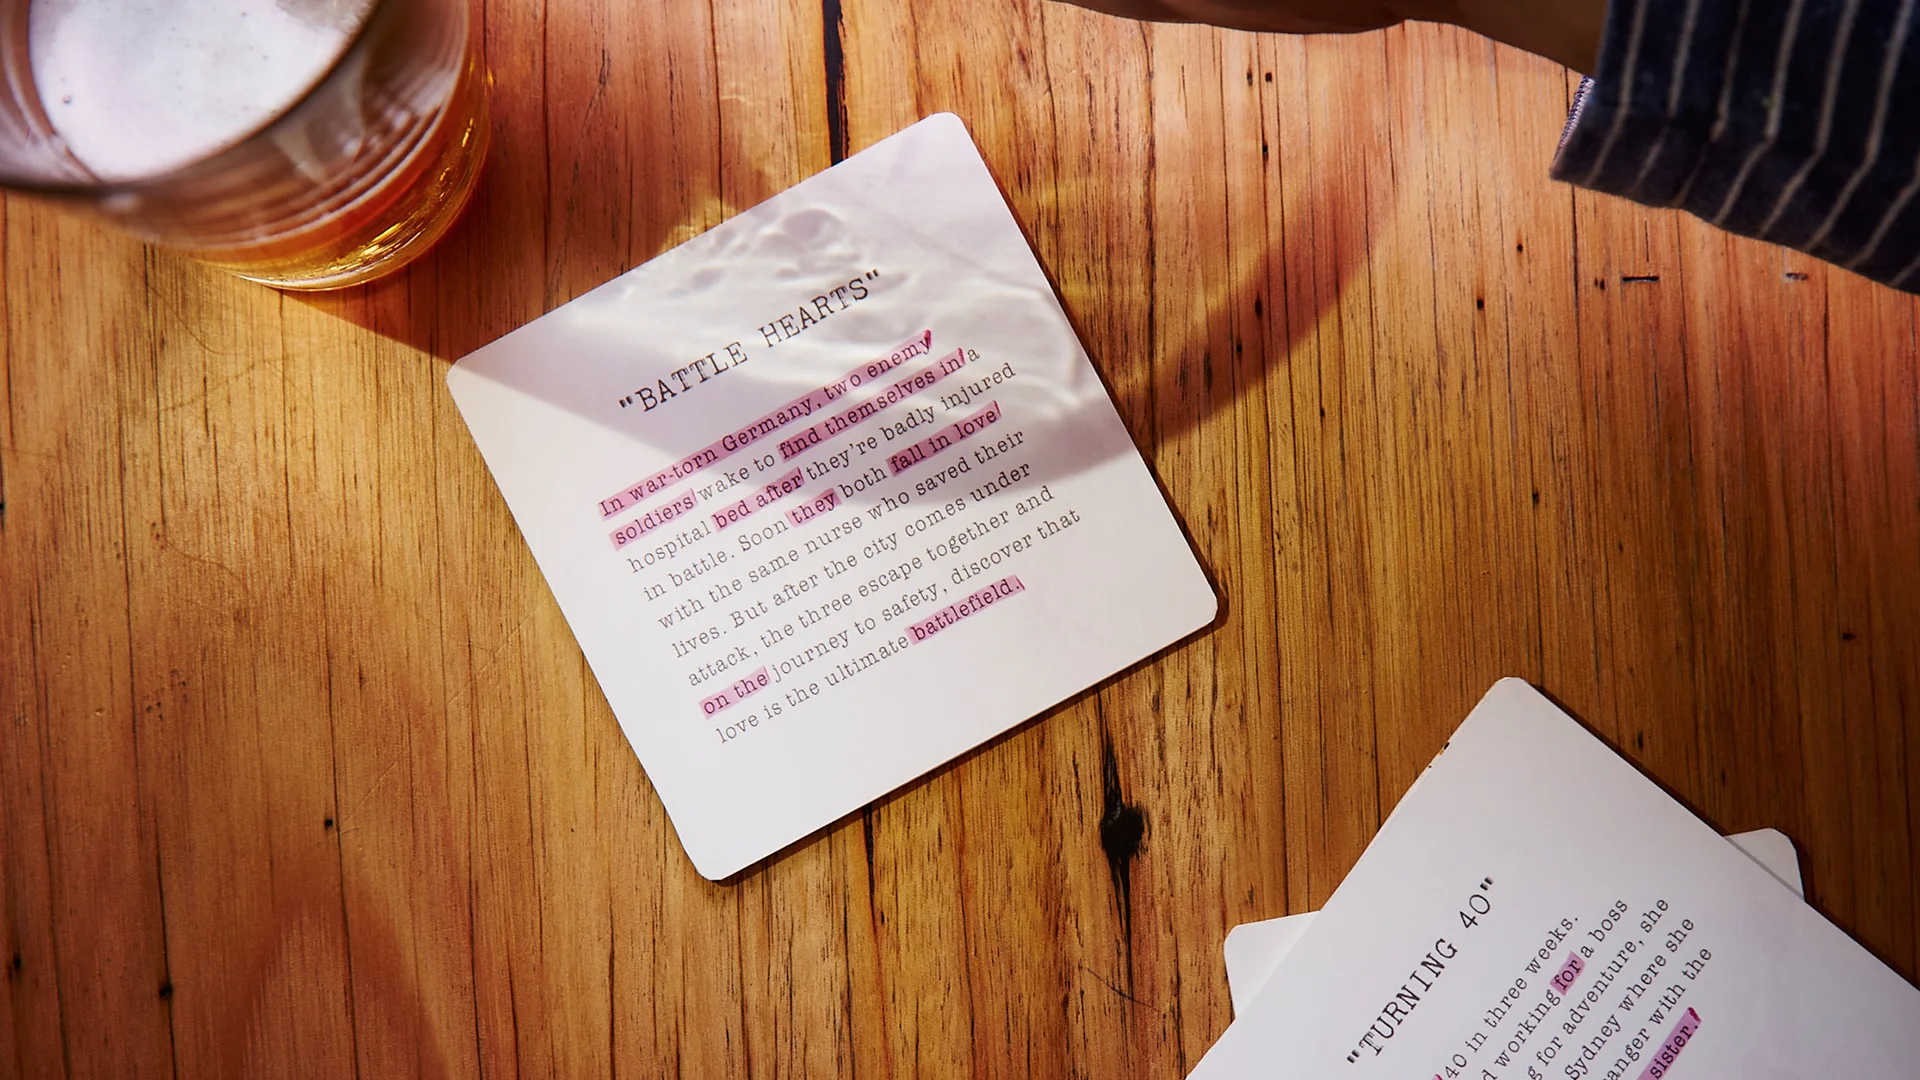 "BATTLE HEARTS"
In war-torn Germany, two enemy
soldiers wake to find themselves in a
hospital bed after they're badly injured
in battle. Soon they both fall in love
with the same nurse who saved their
lives. But after the city comes under
attack, the three escape together and
on the journey to safety, discover that
love is the ultimate battlefield.
"TURNING 40"
40 in three weeks.
working for a boss
for adventure, she
Sydney where she
with the
sister.